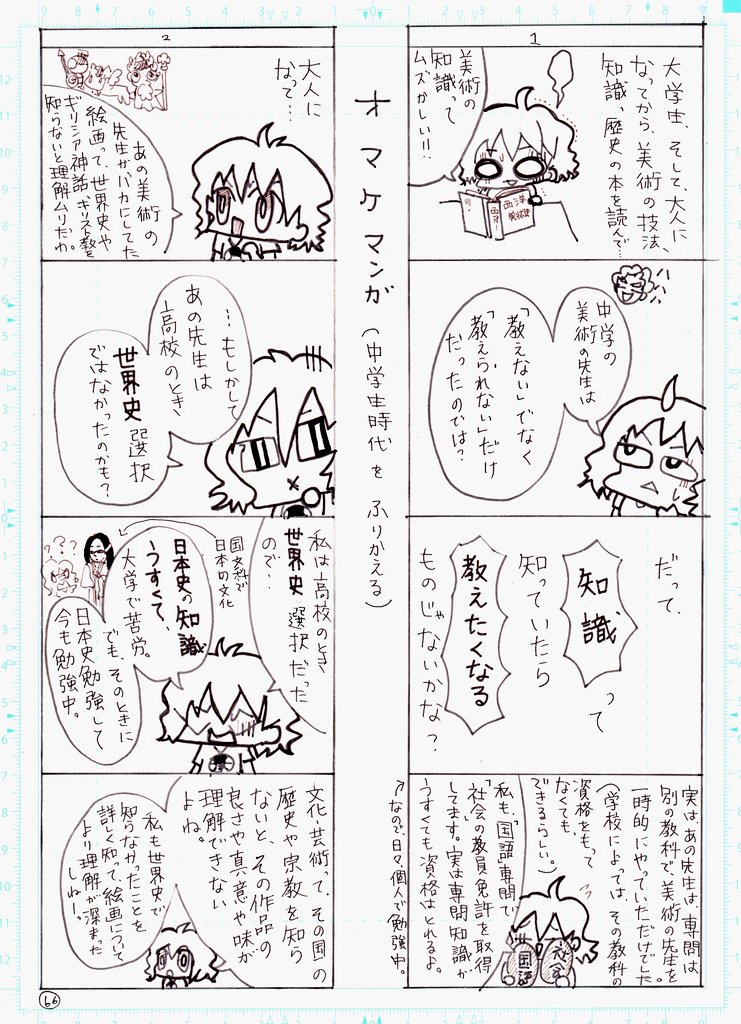 オマケマンガ(中学生時代をふりかえる)
1
大学生、そして、大人に
なってから、美術の技法、
知識、歴史の本を読んで…
美術の
知識って
ムズかしい!!
西洋
美術史
中学の
美術の先生は
「教えない」でなく
「教えられない」だけ
だったのでは?
だって、
知識って
知っていたら
教えたくなる
ものじゃないかな?
実は、あの先生は、専門は
別の教科で美術の先生を
一時的にやっていただけでした。
(学校によっては、その教科の
資格をもって
なくても
できるらしい。)
私も、「国語」専門で
「社会」の教員免許を取得
してます。実は専門知識が
うすくても資格はとれるよ。
↑なので、日々、個人で勉強中。
国語
社会
2
大人に
なって…
あの美術の
先生がバカにしてた
絵画って、世界史や
ギリシア神話、キリスト教を
知らないと理解ムリだわ。
…もしかして
あの先生は
高校のとき
世界史選択
ではなかったのかも?
私は高校のとき
世界史選択だった
ので…
国文科で
日本の文化
日本史の知識
うすくて、
大学で苦労。
でも、そのときに
日本史勉強して
今も勉強中。
???
文化芸術って、その国の
歴史や宗教を知ら
ないと、その作品の
良さや真意や味が
理解できない
よね。
私も世界史で
知らなかったことを
詳しく知って、絵画について
より理解が深まった
しねー。
66